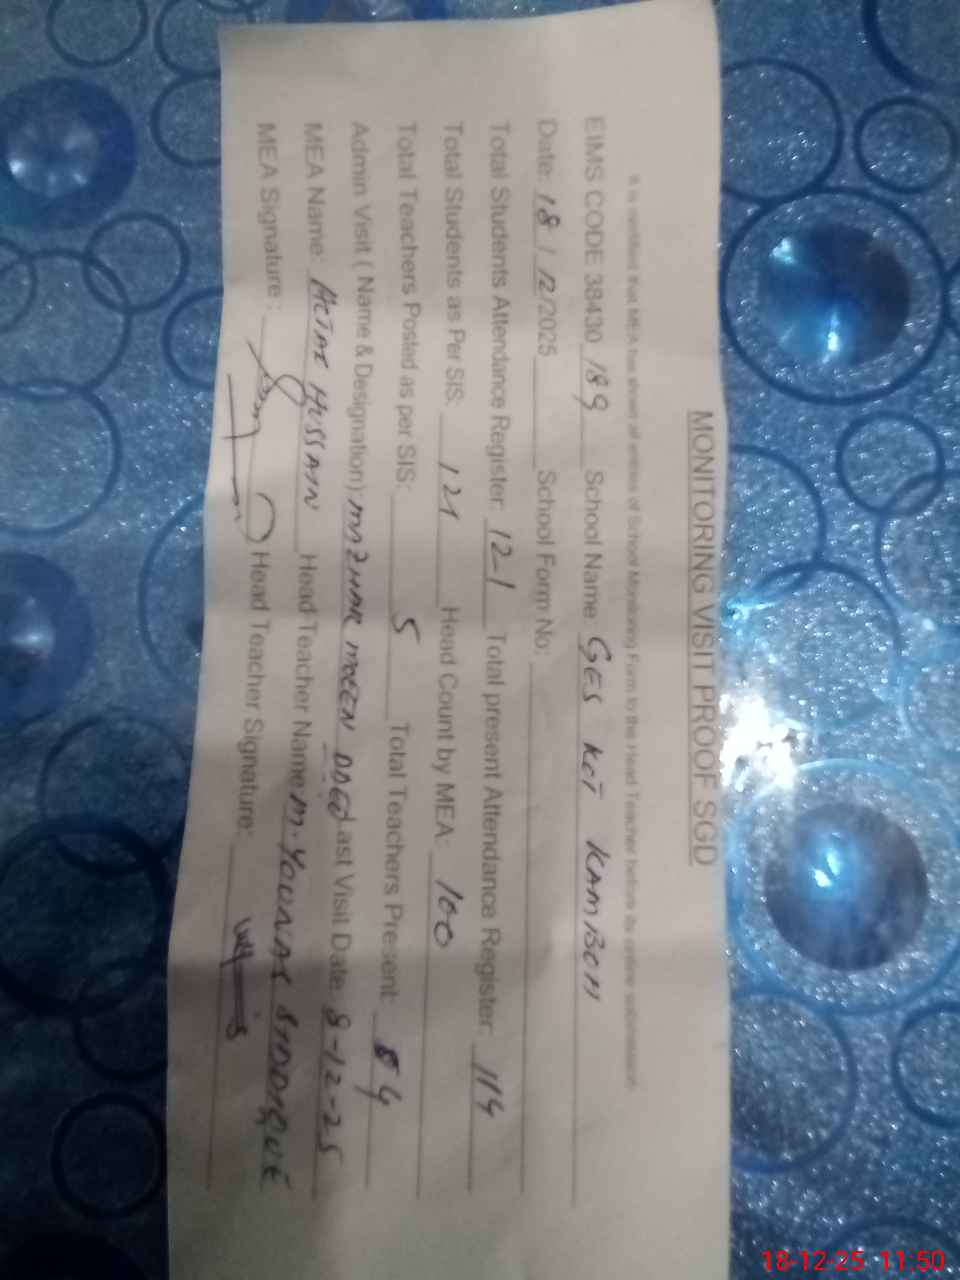 MONITORING VISIT PROOF SGD
It is certified that MEA has shown all entries of School Monitoring Form to the Head Teacher before its online submission
EIMS CODE 38430 189 School Name: GES KOT KAMBOH
Date: 18 / 12/2025 School Form No:
Total Students Attendance Register: 121 Total present Attendance Register: 114
Total Students as Per SIS: 121 Head Count by MEA: 100
Total Teachers Posted as per SIS: 5 Total Teachers Present: 4
Admin Visit ( Name & Designation): MAZHAR MOEEN Last Visit Date: 8-12-25
MEA Name: HUSSAIN Head Teacher Name: M. YOUNAS SIDDIQUE
MEA Signature: Head Teacher Signature:
18-12-25 11:50